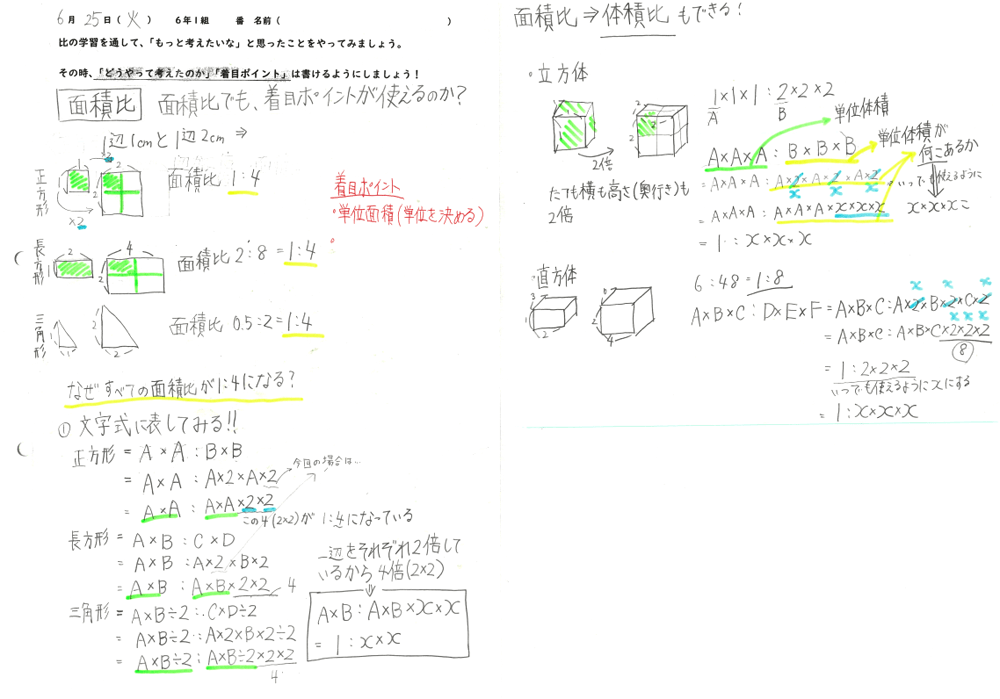 6月 25日(火) 6年1組 番 名前( )
比の学習を通して、「もっと考えたいな」と思ったことをやってみましょう。
その時、「どうやって考えたのか」「着目ポイント」は書けるようにしましょう!
面積比 面積比でも、着目ポイントが使えるのか?
1辺1cmと1辺2cm ⇒
正方形
1
2
2
×2
面積比 1:4
着目ポイント
・単位面積(単位を決める)
長方形
2
1
4
2
面積比 2:8=1:4
三角形
1
1
2
2
面積比 0.5:2=1:4
なぜすべての面積比が1:4になる?
① 文字式に表してみる!!
正方形 = A×A:B×B
今回の場合は…
= A×A:A×2×A×2
= A×A:A×A×2×2
この4(2×2)が 1:4になっている
長方形 = A×B:C×D
= A×B:A×2×B×2
= A×B:A×B×2×2 4
三角形 = A×B÷2:C×D÷2
= A×B÷2:A×2×B×2÷2
= A×B÷2:A×B÷2×2×2
4
一辺をそれぞれ2倍して
いるから4倍(2×2)
A×B:A×B×x×x
= 1:x×x
面積比⇒体積比もできる!
・立方体
1
1
2
2
2倍
たても横も高さ(奥行き)も
2倍
1×1×1:2×2×2
A B
単位体積
A×A×A:B×B×B
単位体積が
何こあるか
=A×A×A:A×2×A×2×A×2
x x x
いつでも使えるように
=A×A×A:A×A×A×x×x×x
x×x×xこ
= 1:x×x×x
・直方体
3
1
2
6
2
4
6:48=1:8
x x x
A×B×C:D×E×F=A×B×C:A×2×B×2×C×2
x x x
=A×B×C:A×B×C×2×2×2
8
= 1:2×2×2
いつでも使えるようにxにする
= 1:x×x×x